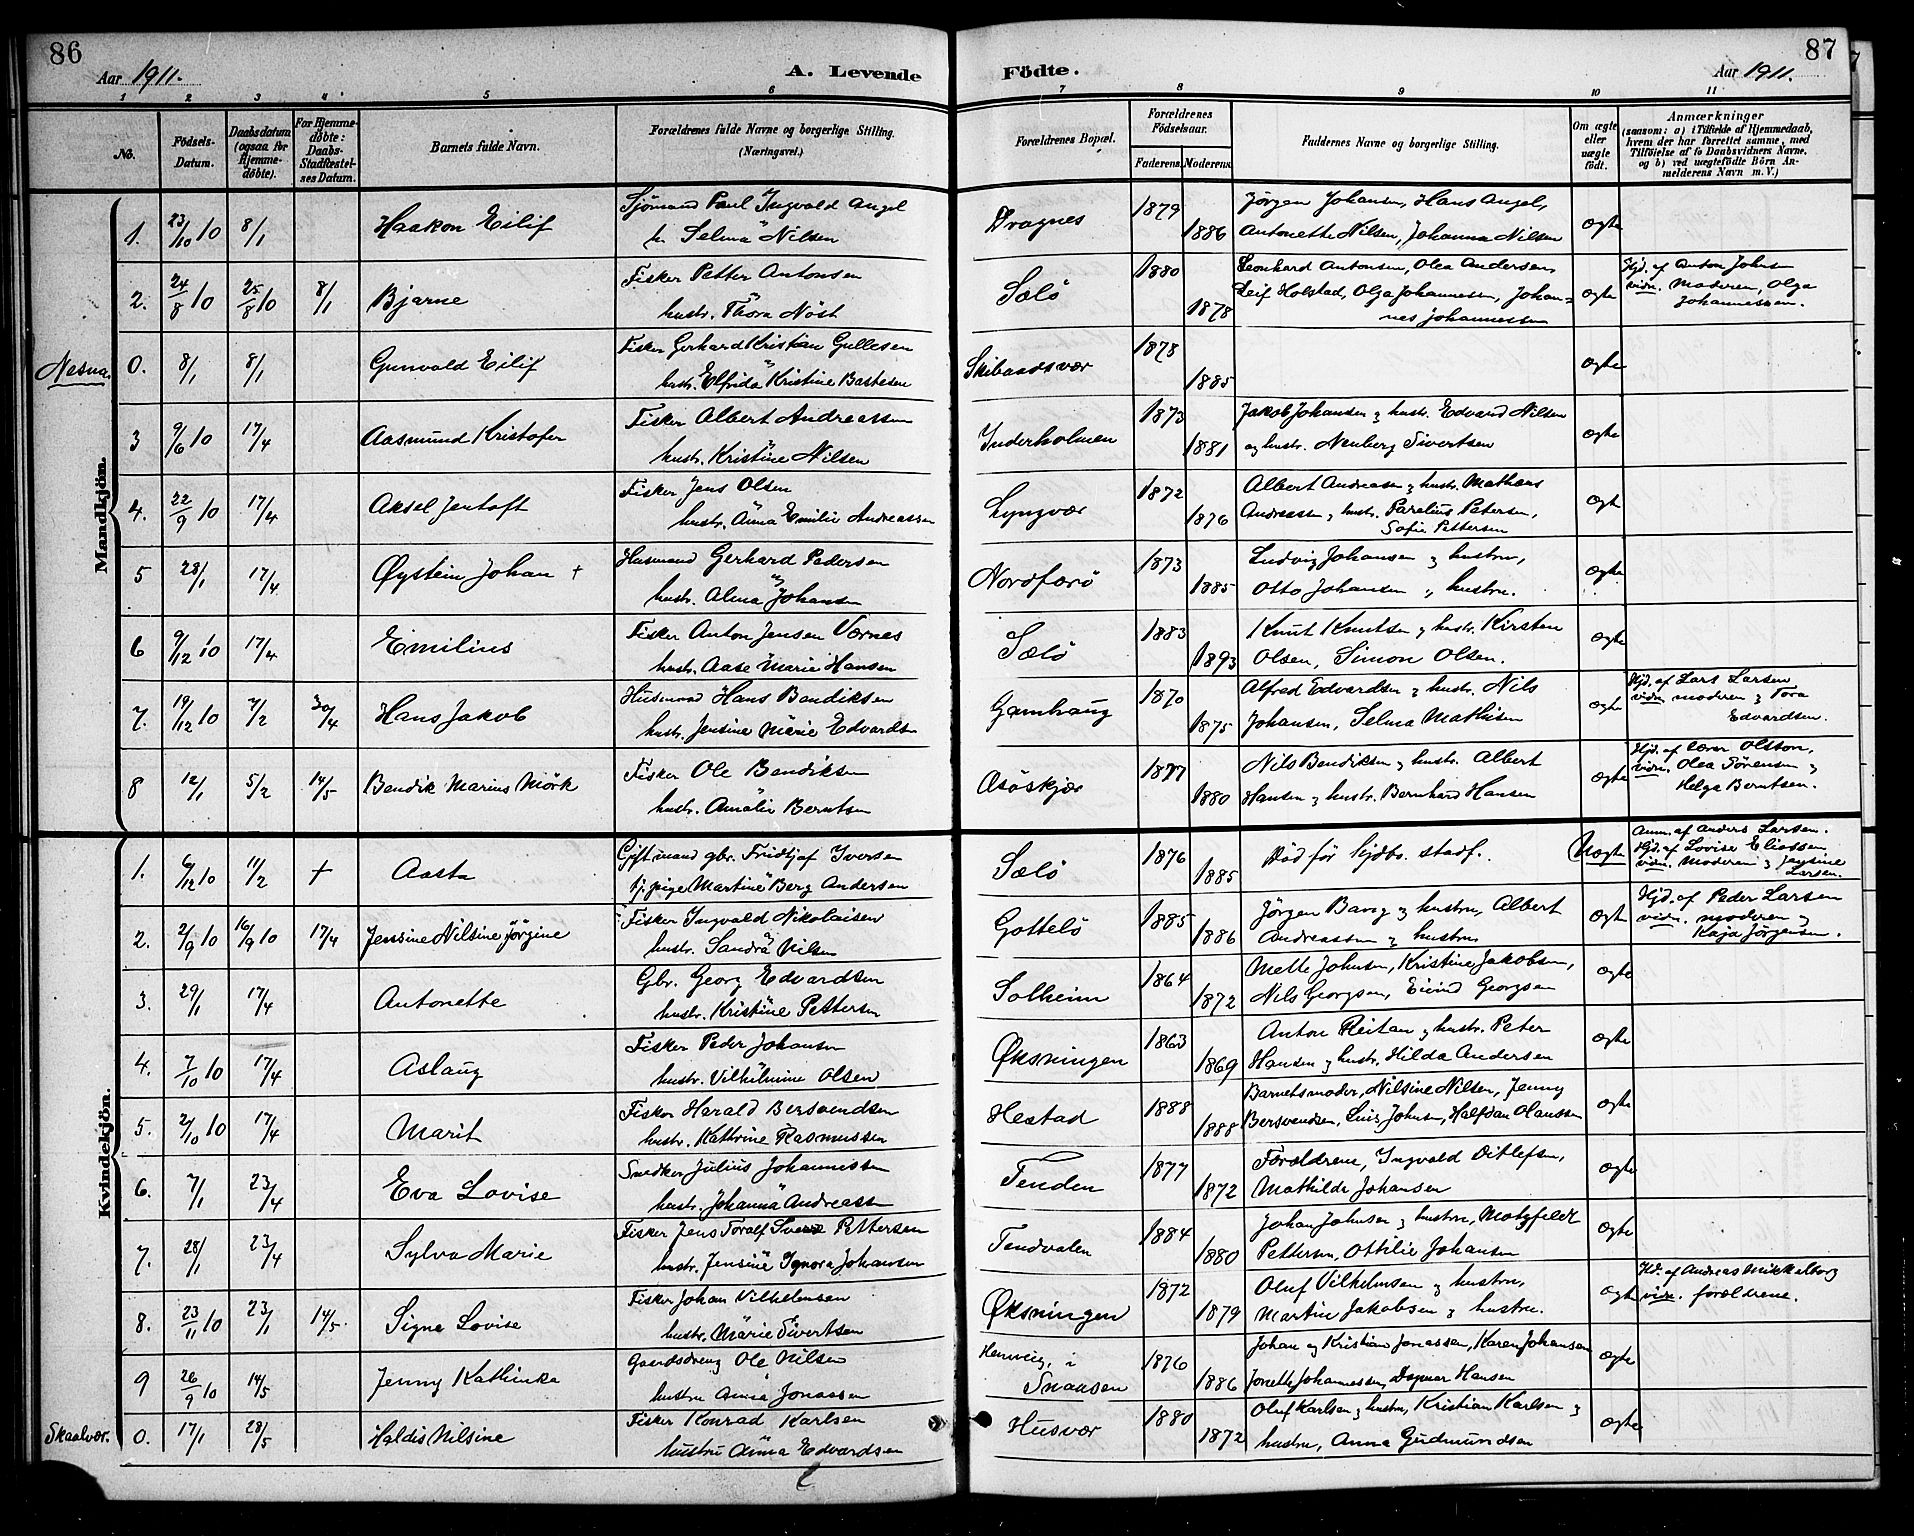 86
Aar 1911.
A. Levende
Födte.
Aar 1911.
87
1 2 3 4 5 6 7 8 9 10 11
No.
Födsels-Datum.
Daabsdatum (ogsaa for Hjemme-døbte).
For Hjemme-døbte: Daabs-Stadfæstel-ses Datum.
Barnets fulde Navn.
Forældrenes fulde Navne og borgerlige Stilling. (Næringsvei.)
Forældrenes Bopæl.
Forældrenes Födselsaar.
Faderens. Moderens.
Faddernes Navne og borgerlige Stilling.
Om ægte eller uægte födt.
Anmærkninger
(saasom: a) i Tilfælde af Hjemmedaab,
hvem der har forrettet samme, med
Tilföielse af to Daabsvidners Navne.
og b) ved uægtefödte Börn An-
melderens Navn m. V.)
Mandkjön.
1. 23/10 10 8/1 Haakon Eilif Sjömand Paul Ingvald Angel Dragnes 1879 Jørgen Johansen, Hans Angel, ægte
h. Selma Nilsen 1886 Antonette Nilsen, Johanna Nilsen
2. 24/8 10 25/8 10 8/1 Bjarne Fisker Petter Antonsen Sælö 1880 Leonhard Antonsen, Olea Andersen, ægte Hjd. af Anton Johnsen
hustr. Thora Nöst 1878 Leif Holstad, Olga Johannessen, Johan= vidn. Moderen, Olga
nes Johannessen Johannessen.
Nesna. 0. 8/1 8/1 Gunvald Eilif Fisker Gerhard Kristian Gullesen Skibaadsvær 1878 ægte
hustr. Elfrida Kristine Bastesen 1885
3 9/6 10 17/4 Aasmund Kristofer Fisker Albert Andreassen Inderholmen 1873 Jakob Johansen & hustr. Edvard Nilsen ægte
hustr. Kristine Nilsen 1881 og hustr. Nenberg Sivertsen
4. 22/9 10 17/4 Aksel Jentoft Fisker Jens Olsen Lyngvær 1872 Albert Andreasen & hustr. Mathæus ægte
hustr. Anna Emilie Andreassen 1876 Andreassen & hustr. Parelius Petersen,
Sofie Pettersen
5 28/1 17/4 Øystein Johan + Husmand Gerhard Pedersen Nordfærö 1873 Ludvig Johansen & hustru, ægte
hustr. Alma Johansen 1885 Otto Johansen " hustru.
6 9/12 10 17/4 Emilius Fisker Anton Jensen Værnes Sælö 1883 Knut Knutsen & hustr. Kirsten ægte
hustr. Aase Marie Hansen 1893 Olsen, Simon Olsen.
7. 19/12 10 7/2 30/4 Hans Jakob Husmand Hans Bendiksen Gamhaug 1870 Alfred Edvardsen & hustr. Nils ægte Hjd. af Lars Larsen
hustr. Jensine Marie Edvardsen 1875 Johansen, Selma Mathisen vidn. moderen & Tora
Edvardsen.
8 12/1 5/2 14/5 Bendik Marius Mörk Fisker Ole Bendiksen Asöskjær 1877 Nils Bendiksen & hustr. Albert ægte Hjd. af lærer Olston,
hustr. Amalie Berntsen 1880 Hansen & hustr. Bernhard Hansen vidn. Olea Sørensen &
Helga Berntsen.
Kvindekjön.
1. 6/12 10 11/2 + Aasta Gift mand gbr. Fridtjof Iversen Sælö 1876 Död før hjdb. stadf. Uægte Anm. af Anders Larsen.
pige Martine Berg Andersen 1885 Hjd. af Lovise Eliassen
vidn. Moderen & Jensine
Larsen.
2. 2/9 10 16/9 10 17/4 Jensine Nilsine Jörgine Fisker Ingvald Nikolaisen Gottelö 1885 Jörgen Bang & hustru, Albert ægte Hjd. af Peder Larsen
hustr. Sandra Nilsen 1886 Andreassen & hustru vidn. moderen &
Kaja Jørgensen.
3. 29/1 17/4 Antonette Gbr. Georg Edvardsen Solheim 1864 Mette Johnsen, Kristine Jakobsen, ægte
hustr. Kristine Pettersen 1872 Nils Georgsen, Eivind Georgsen
4. 7/10 10 17/4 Aslaug Fisker Peder Johansen Øksningen 1863 Anton Reitan & hustr. Peter ægte
hustr. Vilhelmine Olsen 1869 Hansen & hustr. Hilda Andersen
5. 2/10 10 17/4 Marit Fisker Harald Bersvendsen Hestad 1888 Barnets moder, Nilsine Nilsen, Jenny ægte
hustr. Kathrine Rasmussen 1888 Bersvendsen, Luis Johnsen, Halfdan Olaussen
6. 7/1 23/4 Eva Lovise Snedker Julius Johannessen Tenden 1877 Forældrene, Ingvald Ditlefsen, ægte
hustr. Johanna Andreassen 1872 Mathilde Johansen
7. 28/1 23/4 Sylva Marie Fisker Jens Toralf Sverre Pettersen Tendvalen 1884 Johan Johnsen & hustru, Motzfeldt ægte
hustr. Jensine Ignora Johansen 1880 Pettersen, Ottilie Johansen
8. 23/11 10 23/1 14/5 Signe Lovise Fisker Johan Vilhelmsen Øksningen 1872 Oluf Vilhelmsen & hustru, ægte Hd. af Andreas Mikkalborg
hustr. Marie Sivertsen 1879 Martin Jakobsen & hustru. vidn. forældrene.
9 26/9 10 14/5 Jenny Kathinka Gaardsdreng Ole Nilsen i Snaasen 1876 Johan og Kristian Jonassen, Karen Johansen ægte
hustru Anna Jonassen 1886 Jonette Johannessen, Dagmar Hansen
Skaalvær. 0. 17/1 28/5 Haldis Nilsine Fisker Konrad Karlsen Husvær 1880 Oluf Karlsen & hustru, Kristian Karlsen & ægte
hustru Anna Edvardsen 1872 hustru, Anna Gudmundsen